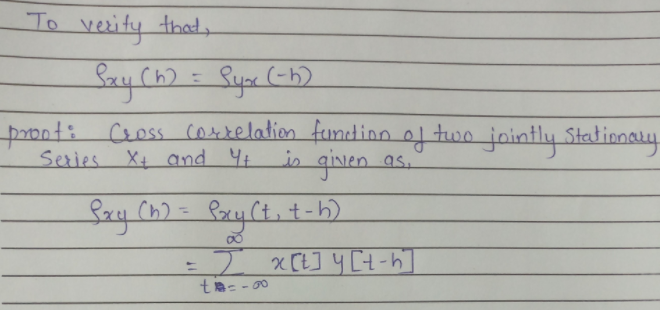 To verify that,
ρxy(h) = ρyx(-h)
proof: Cross correlation function of two jointly stationary
series Xt and Yt is given as,
ρxy(h) = ρxy(t, t-h)
= ∞∑t=-∞ x[t] y[t-h]